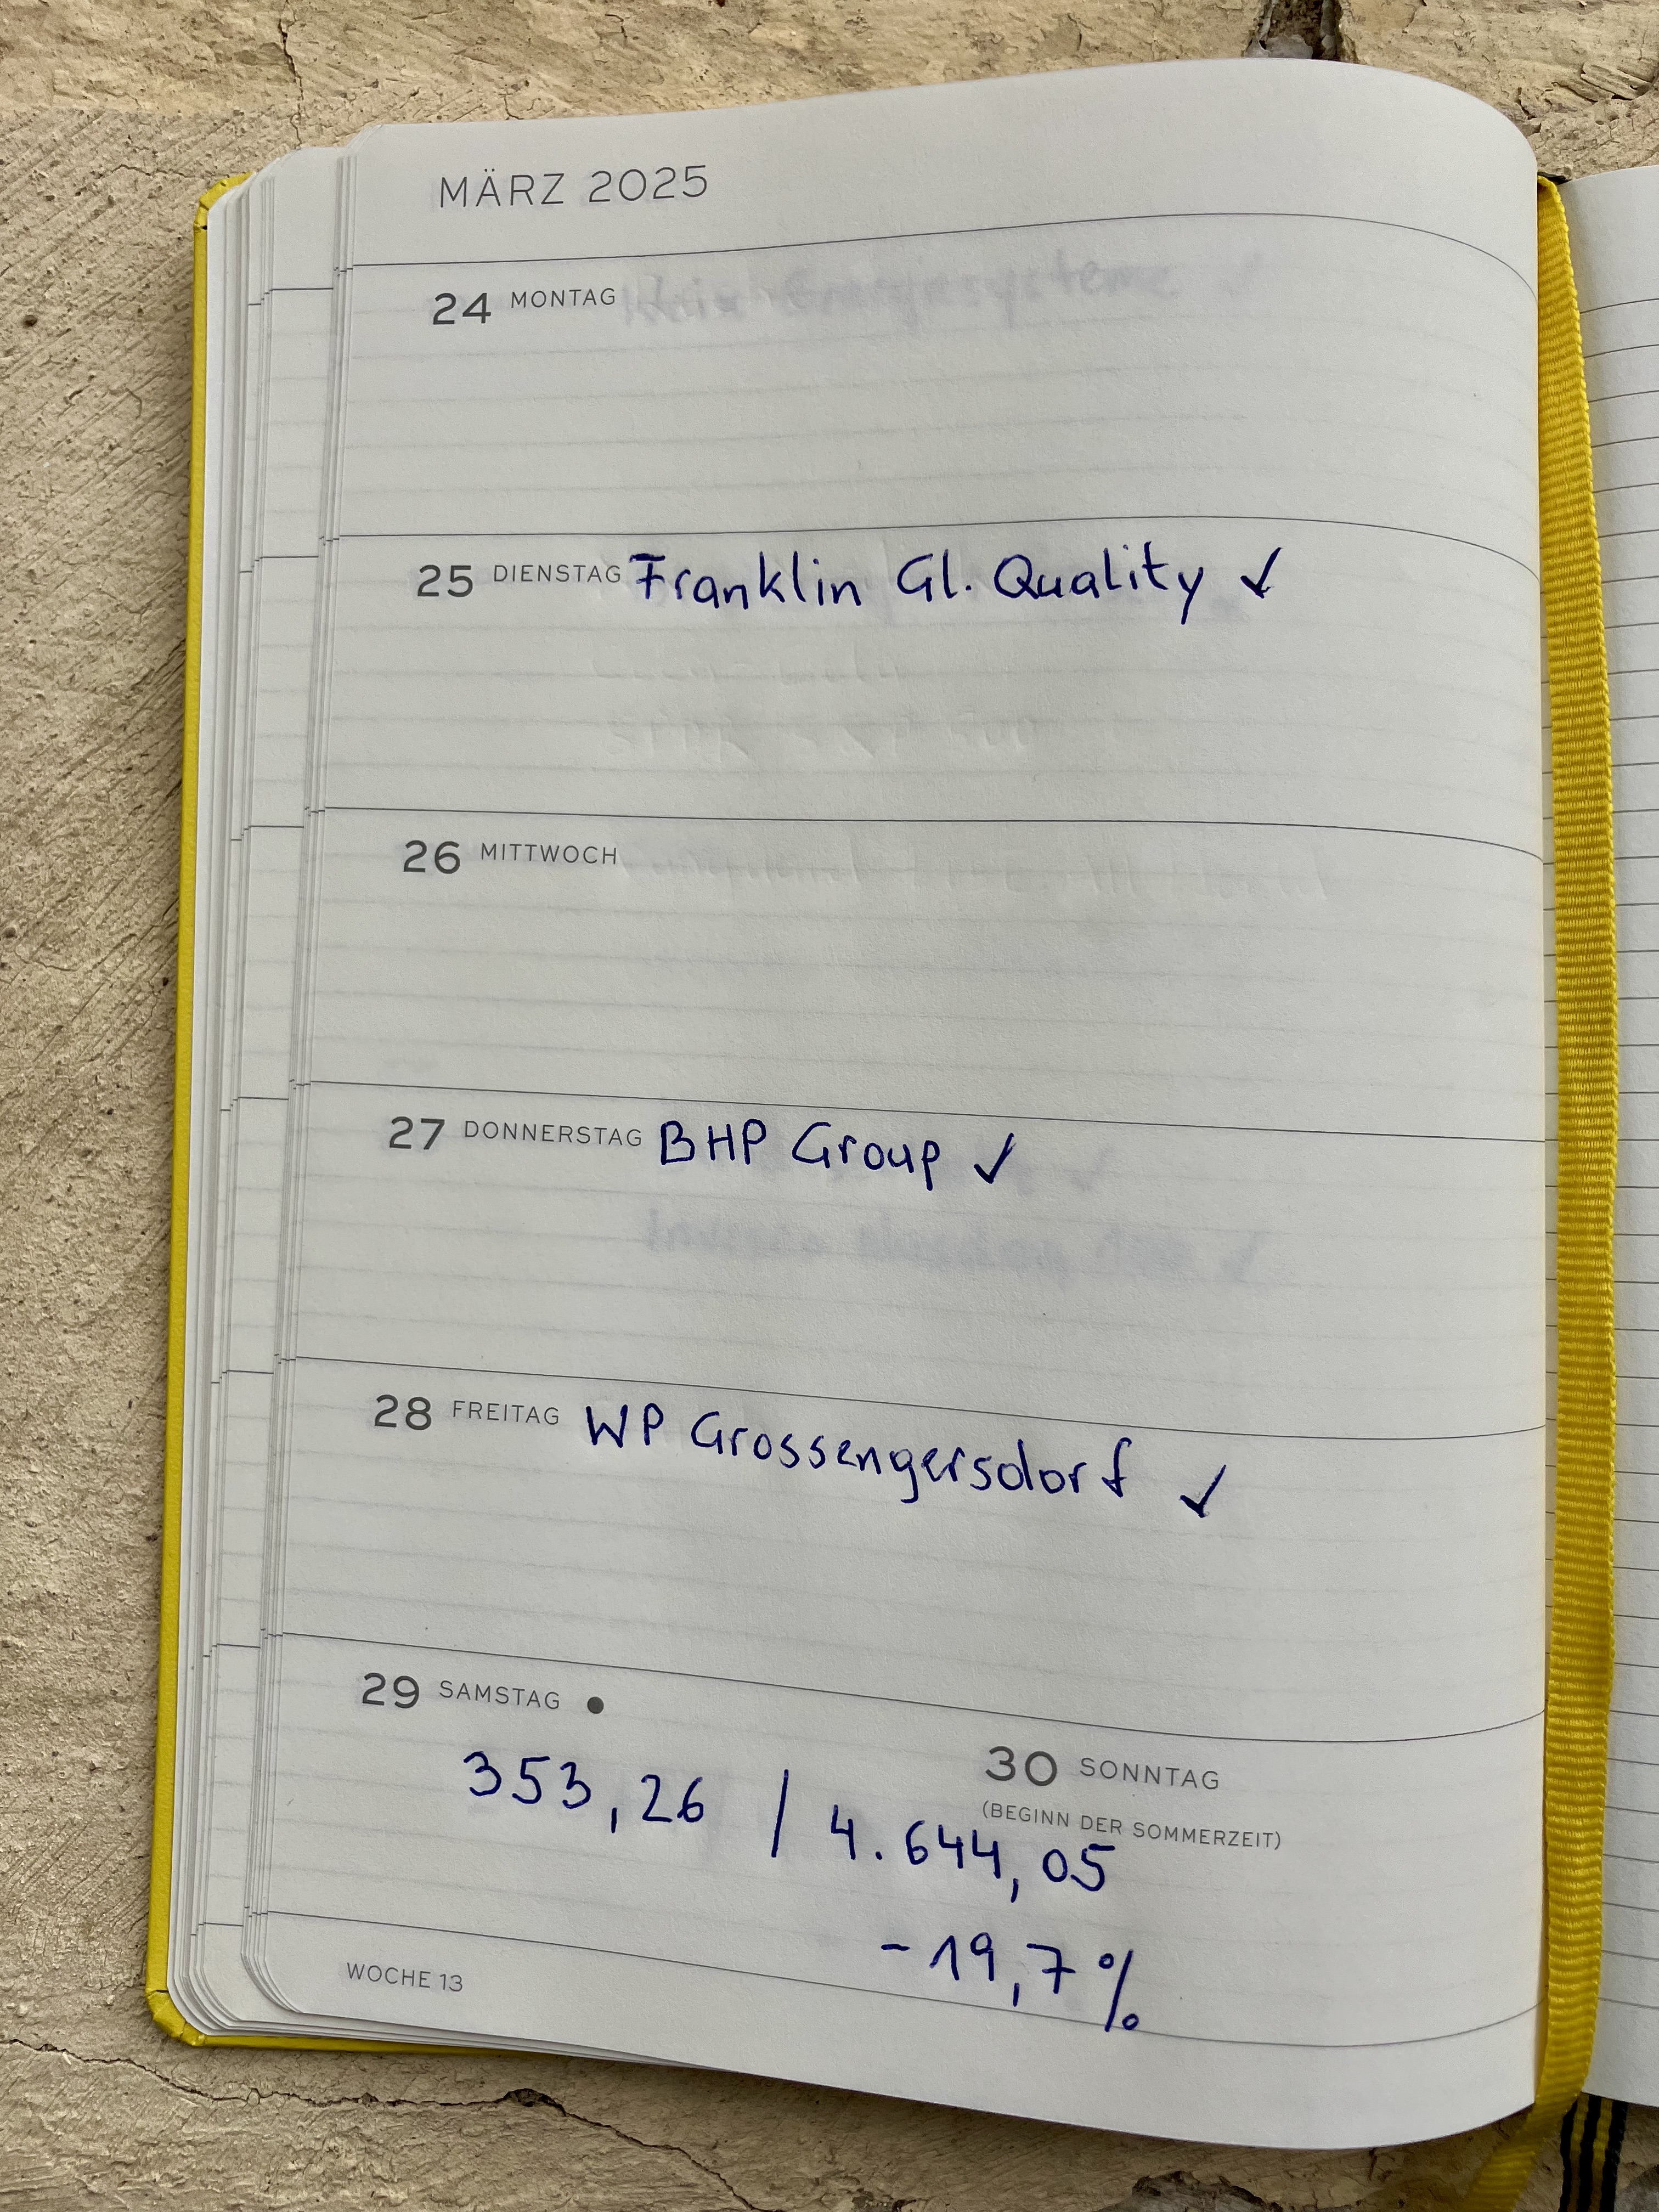 MÄRZ 2025
24 MONTAG
25 DIENSTAG Franklin Gl. Quality ✓
26 MITTWOCH
27 DONNERSTAG BHP Group ✓
28 FREITAG WP Grossengersdorf ✓
29 SAMSTAG ●
353,26 / 4.644,05
30 SONNTAG
(BEGINN DER SOMMERZEIT)
-19,7%
WOCHE 13